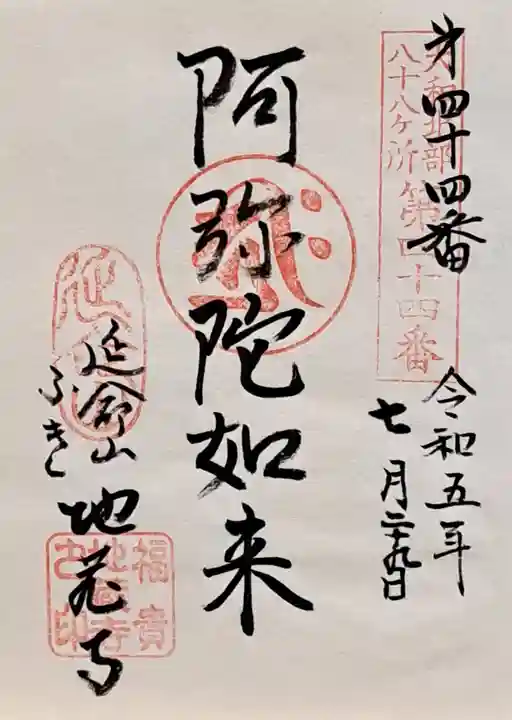 第四十四番
大和北部
八十八ヶ所第四十四番
令和五年
七月二十九日
阿弥陀如来
延命山
ふき
地蔵寺
福貴
地蔵寺
之印